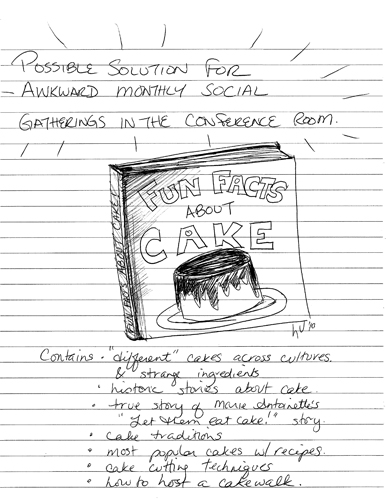 POSSIBLE SOLUTION FOR
AWKWARD MONTHLY SOCIAL
GATHERINGS IN THE CONFERENCE ROOM.
FUN FACTS
ABOUT
CAKE
FUN FACTS ABOUT CAKE
Contains • "different" cakes across cultures
& strange ingredients
• historic stories about cake.
• true story of Marie Antoinette's
"Let them eat cake!" story.
• cake traditions
• most popular cakes w/ recipes.
• cake cutting techniques
• how to host a cakewalk.